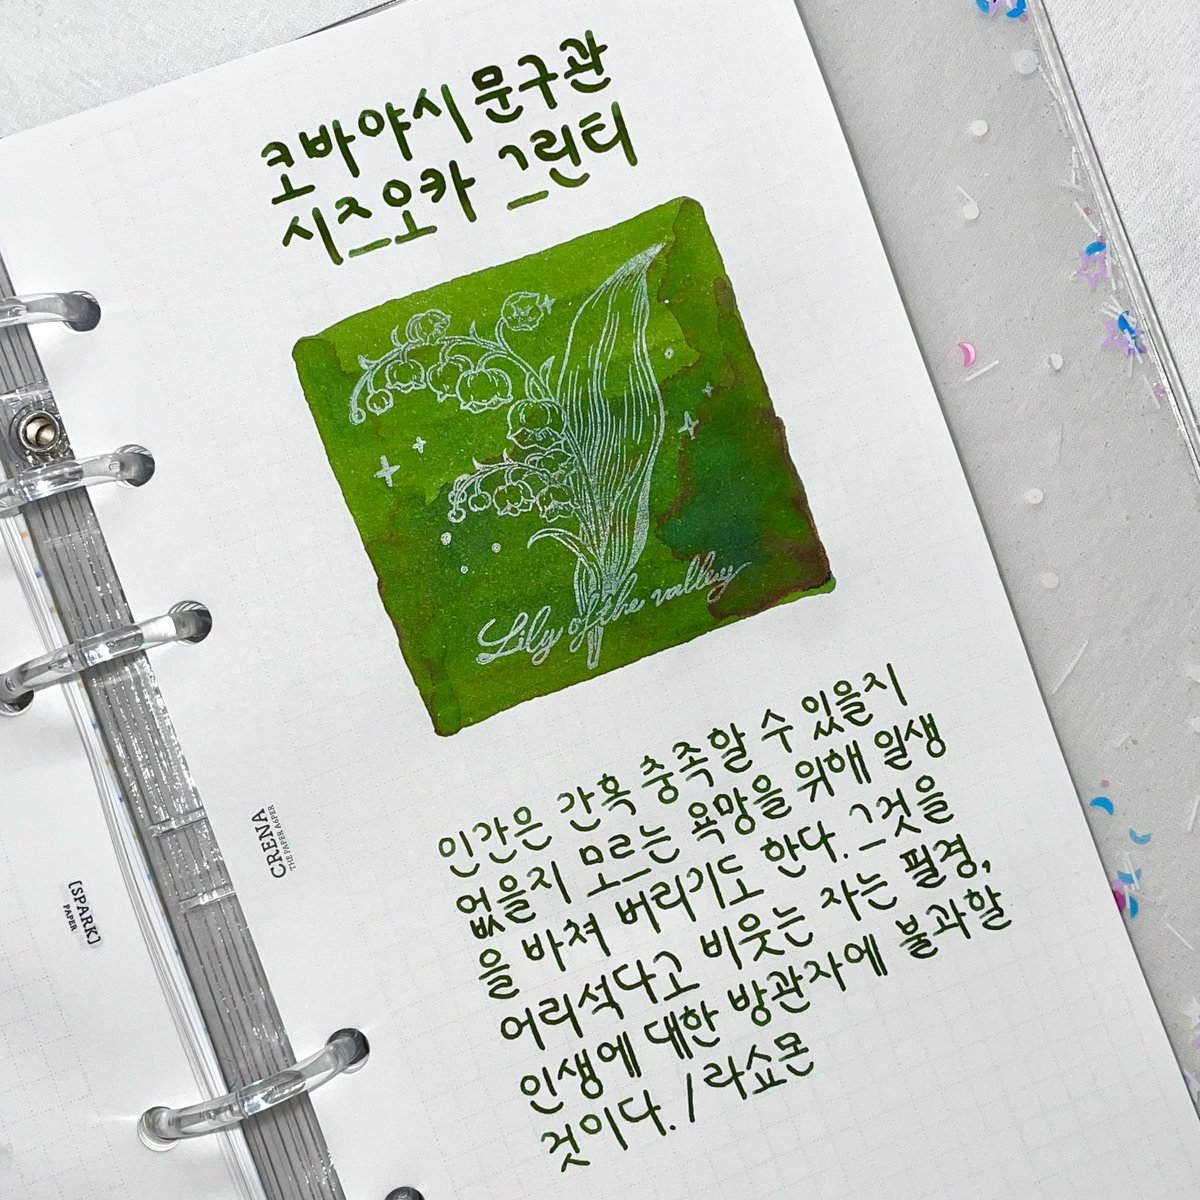 코바야시 문구관
시즈오카 그린티
Lily of the valley
인간은 간혹 충족할 수 있을지
없을지 모르는 욕망을 위해 일생
을 바쳐 버리기도 한다. 그것을
어리석다고 비웃는 자는 필경,
인생에 대한 방관자에 불과할
것이다. / 라쇼몬
CRENA
THE PAPER A6PER
[SPARK]
PAPER